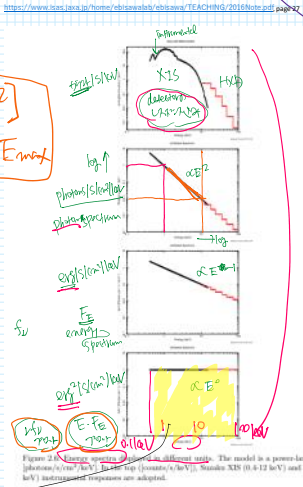 https://www.isas.jaxa.jp/home/ebisawalab/ebisawa/TEACHING/2016Note.pdf page 27
instrumental
XIS
HXD
detector
E max
log ↑
photons/s/cm²/keV
photon spectrum
∝E⁻²
→ log
erg/s/cm²/keV
∝ E⁻¹
F_E
energy
spectrum
f_ν
erg²/s/cm²/keV
∝ E⁰
E·F_E
0.1 keV
1
10
Figure 2.6: Energy spectra displayed in different units. The model is a power-law
[photons/s/cm²/keV]. In the top ([counts/s/keV]), Suzaku XIS (0.4-12 keV) and
keV) instrumental responses are adopted.